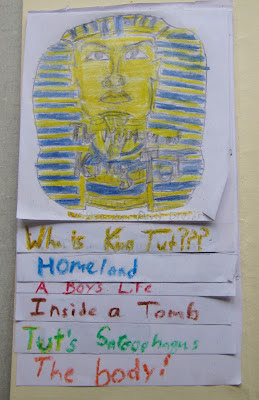 Who is King Tut???
Homeland
A Boys Life
Inside a Tomb
Tut's Sarcophagus
The body!